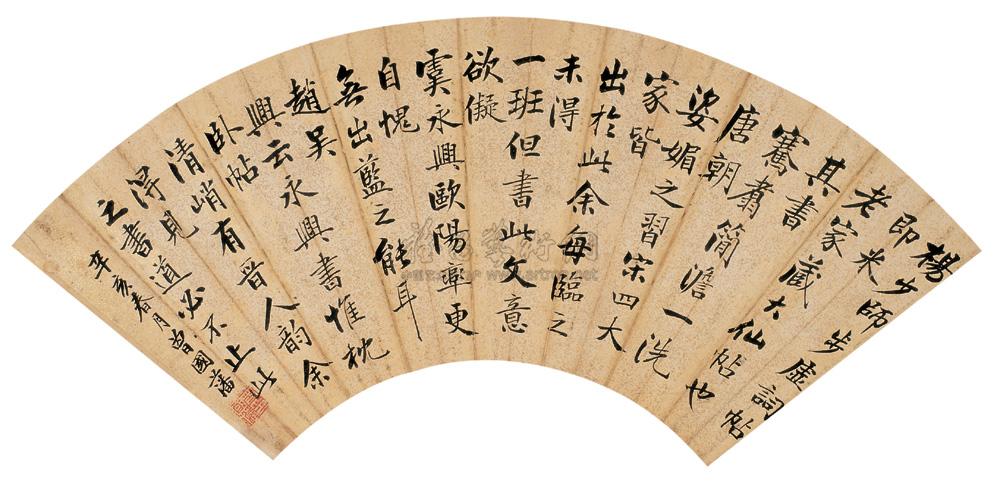 楊少師步虛詞帖
即米
老家藏大仙帖也
其書
騫肅簡澹一洗
唐朝
姿媚之習宋四大
家皆
出於此余每臨之
未得
一班但書此文意
欲儗
虞永興歐陽率更
自愧
無出藍之能耳
趙吳
興云永興書惟枕
卧帖
清峭有晉人韵余
淂見道必不止此
之書
辛亥春月曾國藩